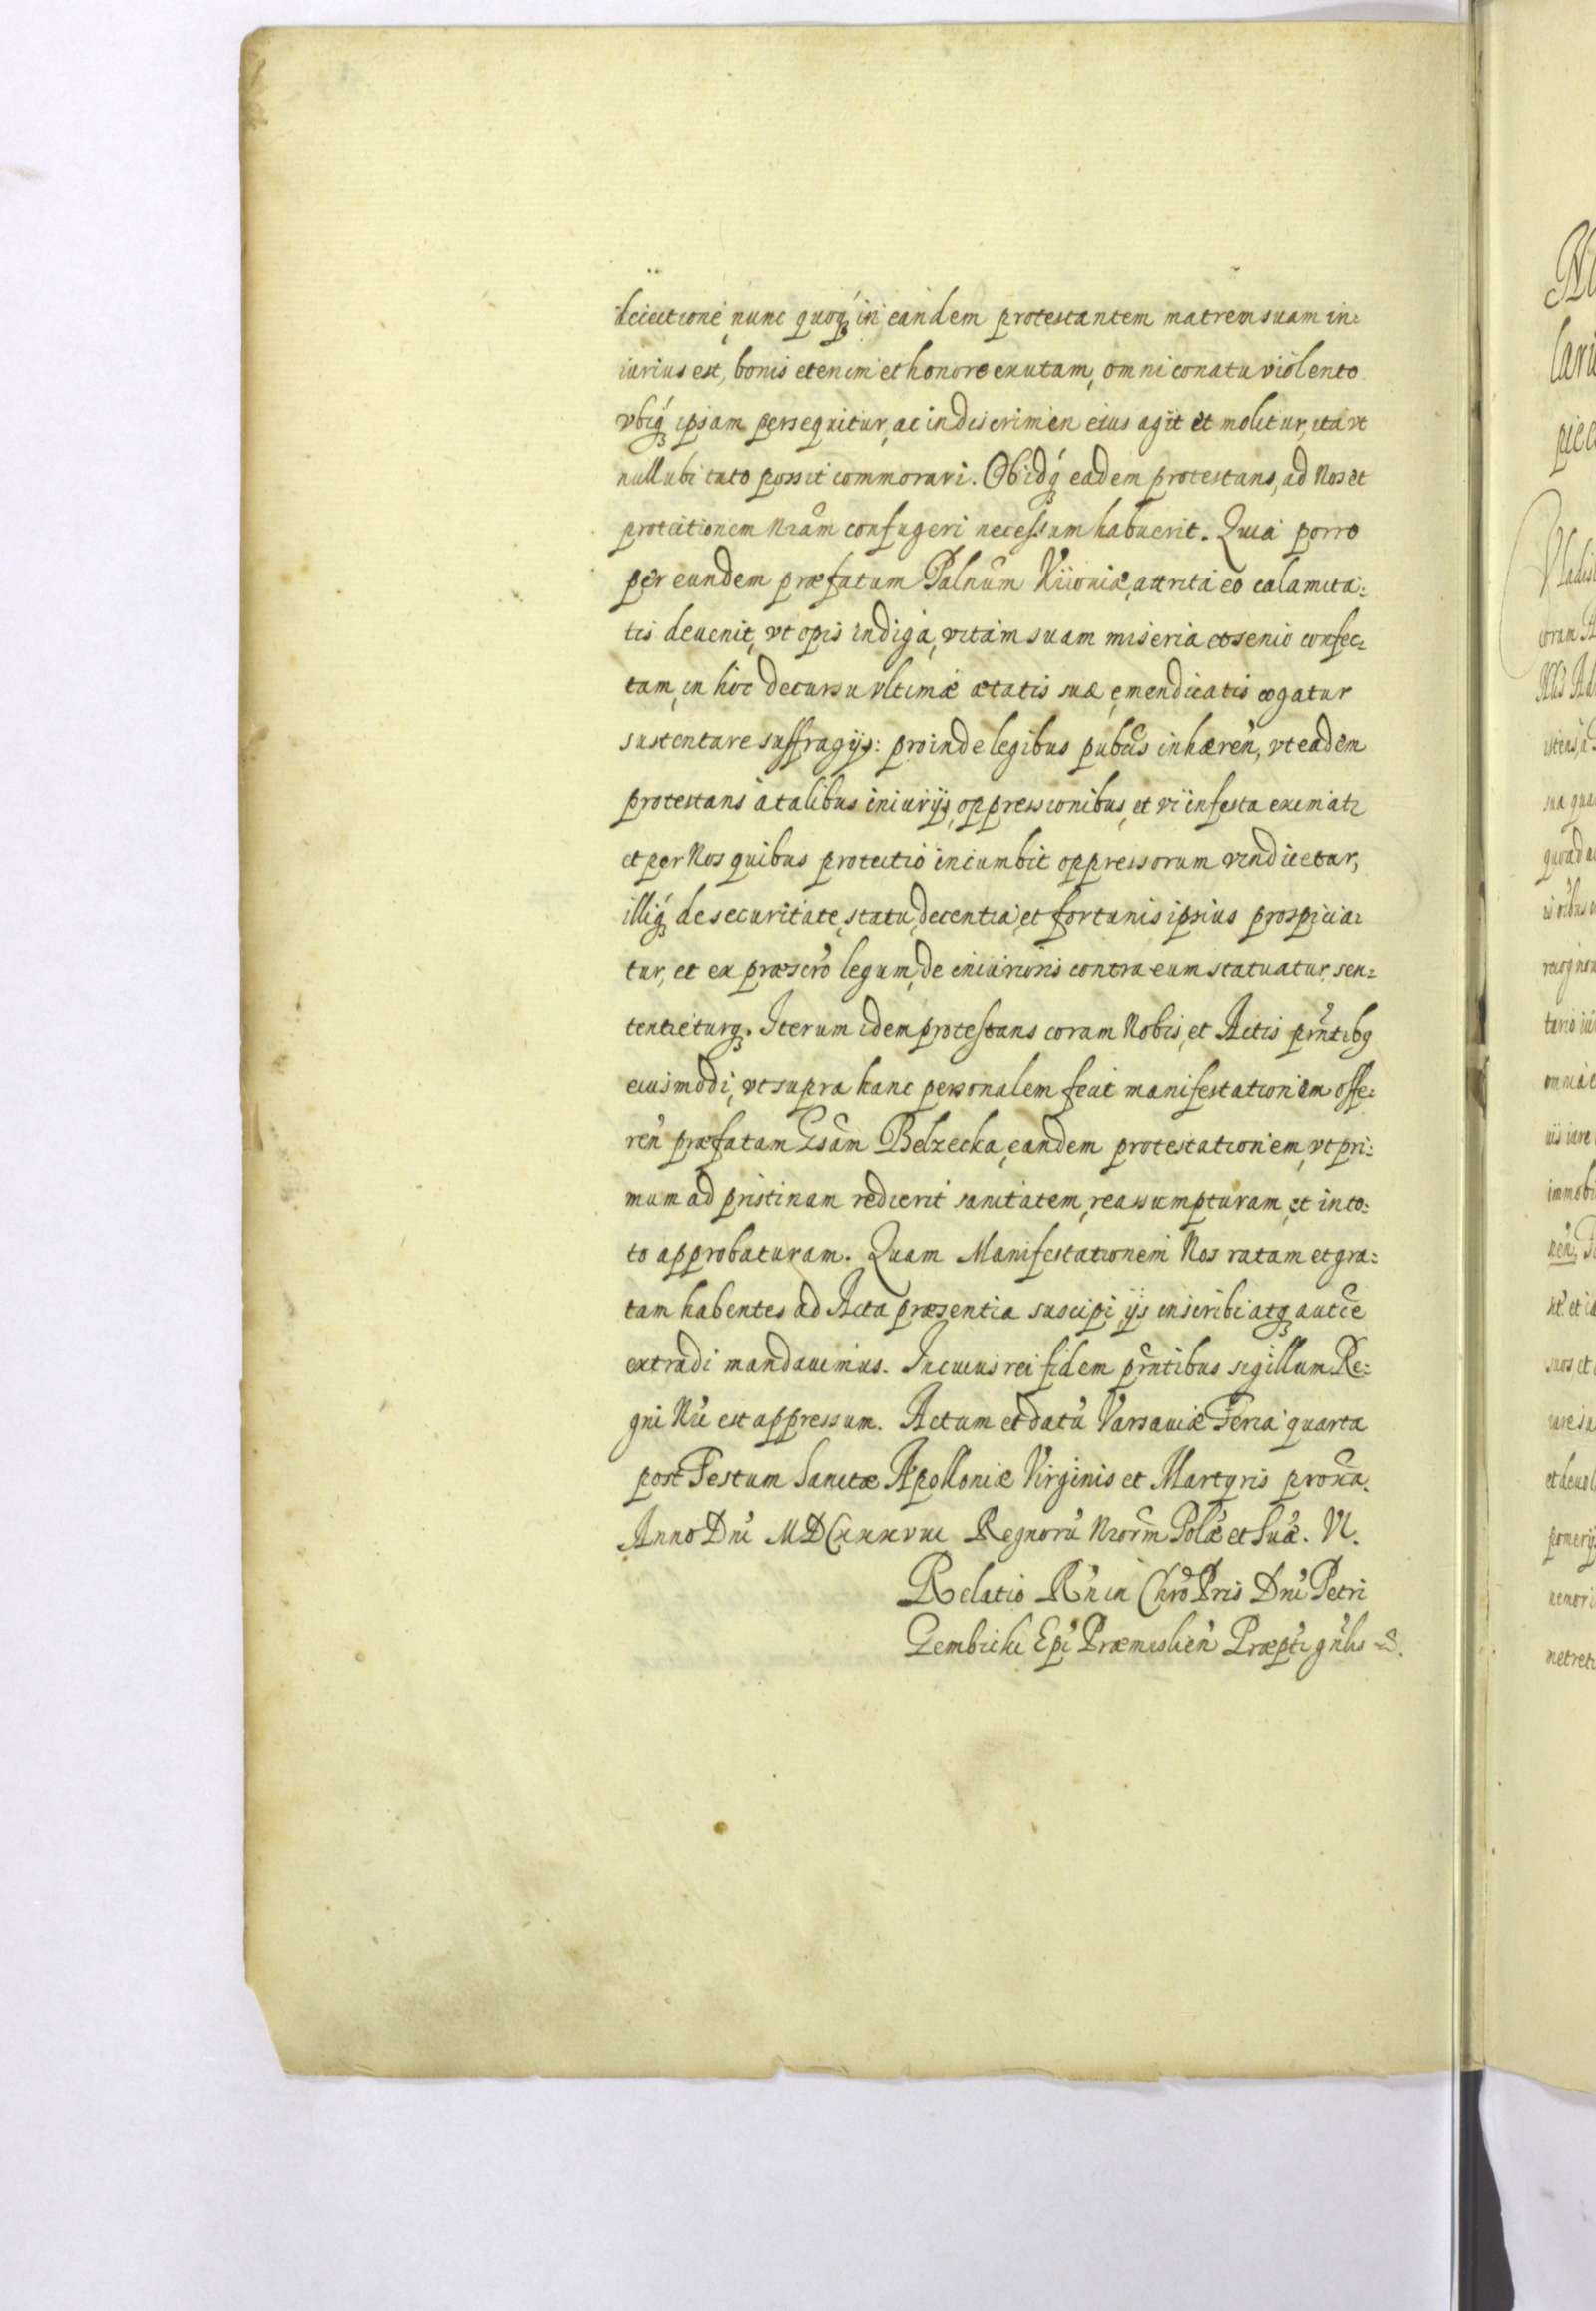 deiectione, nunc quoq́ in eandem protestantem matrem suam in:
iurius est, bonis etenim et honore exutam, omni conatu violento
vbiq́ ipsam persequitur, ac in discrimen eius agit et molitur, ita vt
nullubi tuto possit commorari. Ob idq́ eadem protestans, ad Nos et
protectionem Nrãm confugeri necessum habuerit. Quia porro
per eundem præfatum Palnum Kiioniæ, attrita eo calamita:
tis deuenit, vt opis indiga, vitam suam miseria et senio confec:
tam, in hoc decursu vltimæ ætatis suæ, emendicatis cogatur
sustentare suffragijs: proinde legibus publs inhæren̄, vt eadem
protestans à talibus iniurijs, oppressionibus, et vi infesta eximat:
et per Nos quibus protectio incumbit oppressorum vindicetur,
illiq́ de securitate, statu, decentia, et fortunis ipsius prospicia:
tur, et ex præscr̃o legum, de iniurioris contra eum statuatur, sen:
tentieturq. Iterum idem protestans coram Nobis, et Actis prñtibq
eiusmodi, vt supra hanc personalem fecit manifestationem offe:
ren̄ præfatam Gsãm Belzecka, eandem protestationem, vt pri:
mum ad pristinam redierit sanitatem, reassumpturam, et in to:
to approbaturam. Quam Manifestationem Nos ratam et gra:
tam habentes ad Acta præsentia suscipi, ijs inscribi atq autce
extradi mandauimus. In cuius rei fidem prñtibus sigillum Re:
gni Nri est appressum. Actum et datũ Varsauiæ Feria quarta
post Festum Sanctæ Apolloniæ Virginis et Martyris proxa.
Anno Dni MDCxxxviii Regnorũ Nrorm Polæ et Suæ. VI.
Relatio Rñ in Chrõ Pris Dni Petri
Gembicki Epi Præmislien̄ Præpti gñlis